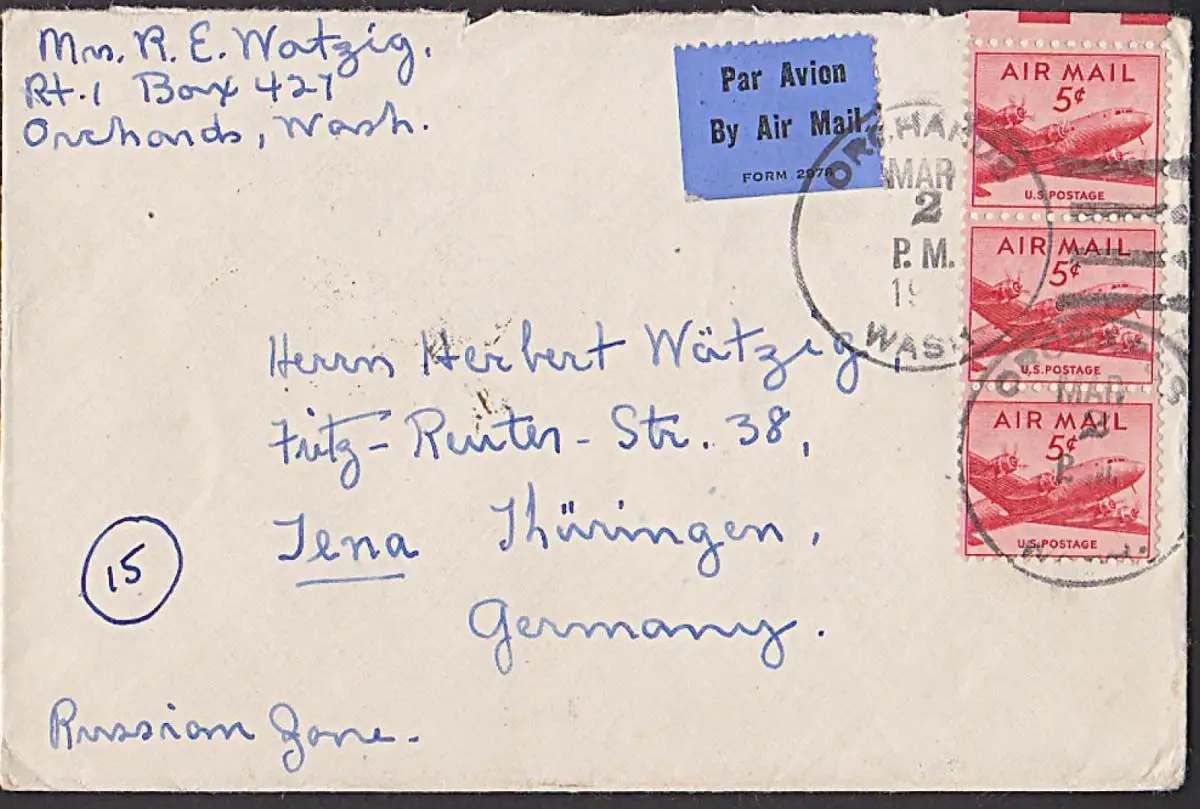 Mrs. R. E. Watzig.
Rt. 1 Box 427
Orchards, Wash.
Par Avion
By Air Mail
FORM 2978
ORCHARDS
MAR
2
P.M.
19
WASH
AIR MAIL
5¢
U.S. POSTAGE
AIR MAIL
5¢
U.S. POSTAGE
AIR MAIL
5¢
U.S. POSTAGE
MAR
2
P.
Herrn Herbert Wätzig,
Fritz-Reuter-Str. 38,
Jena Thüringen,
Germany.
15
Russian Zone.